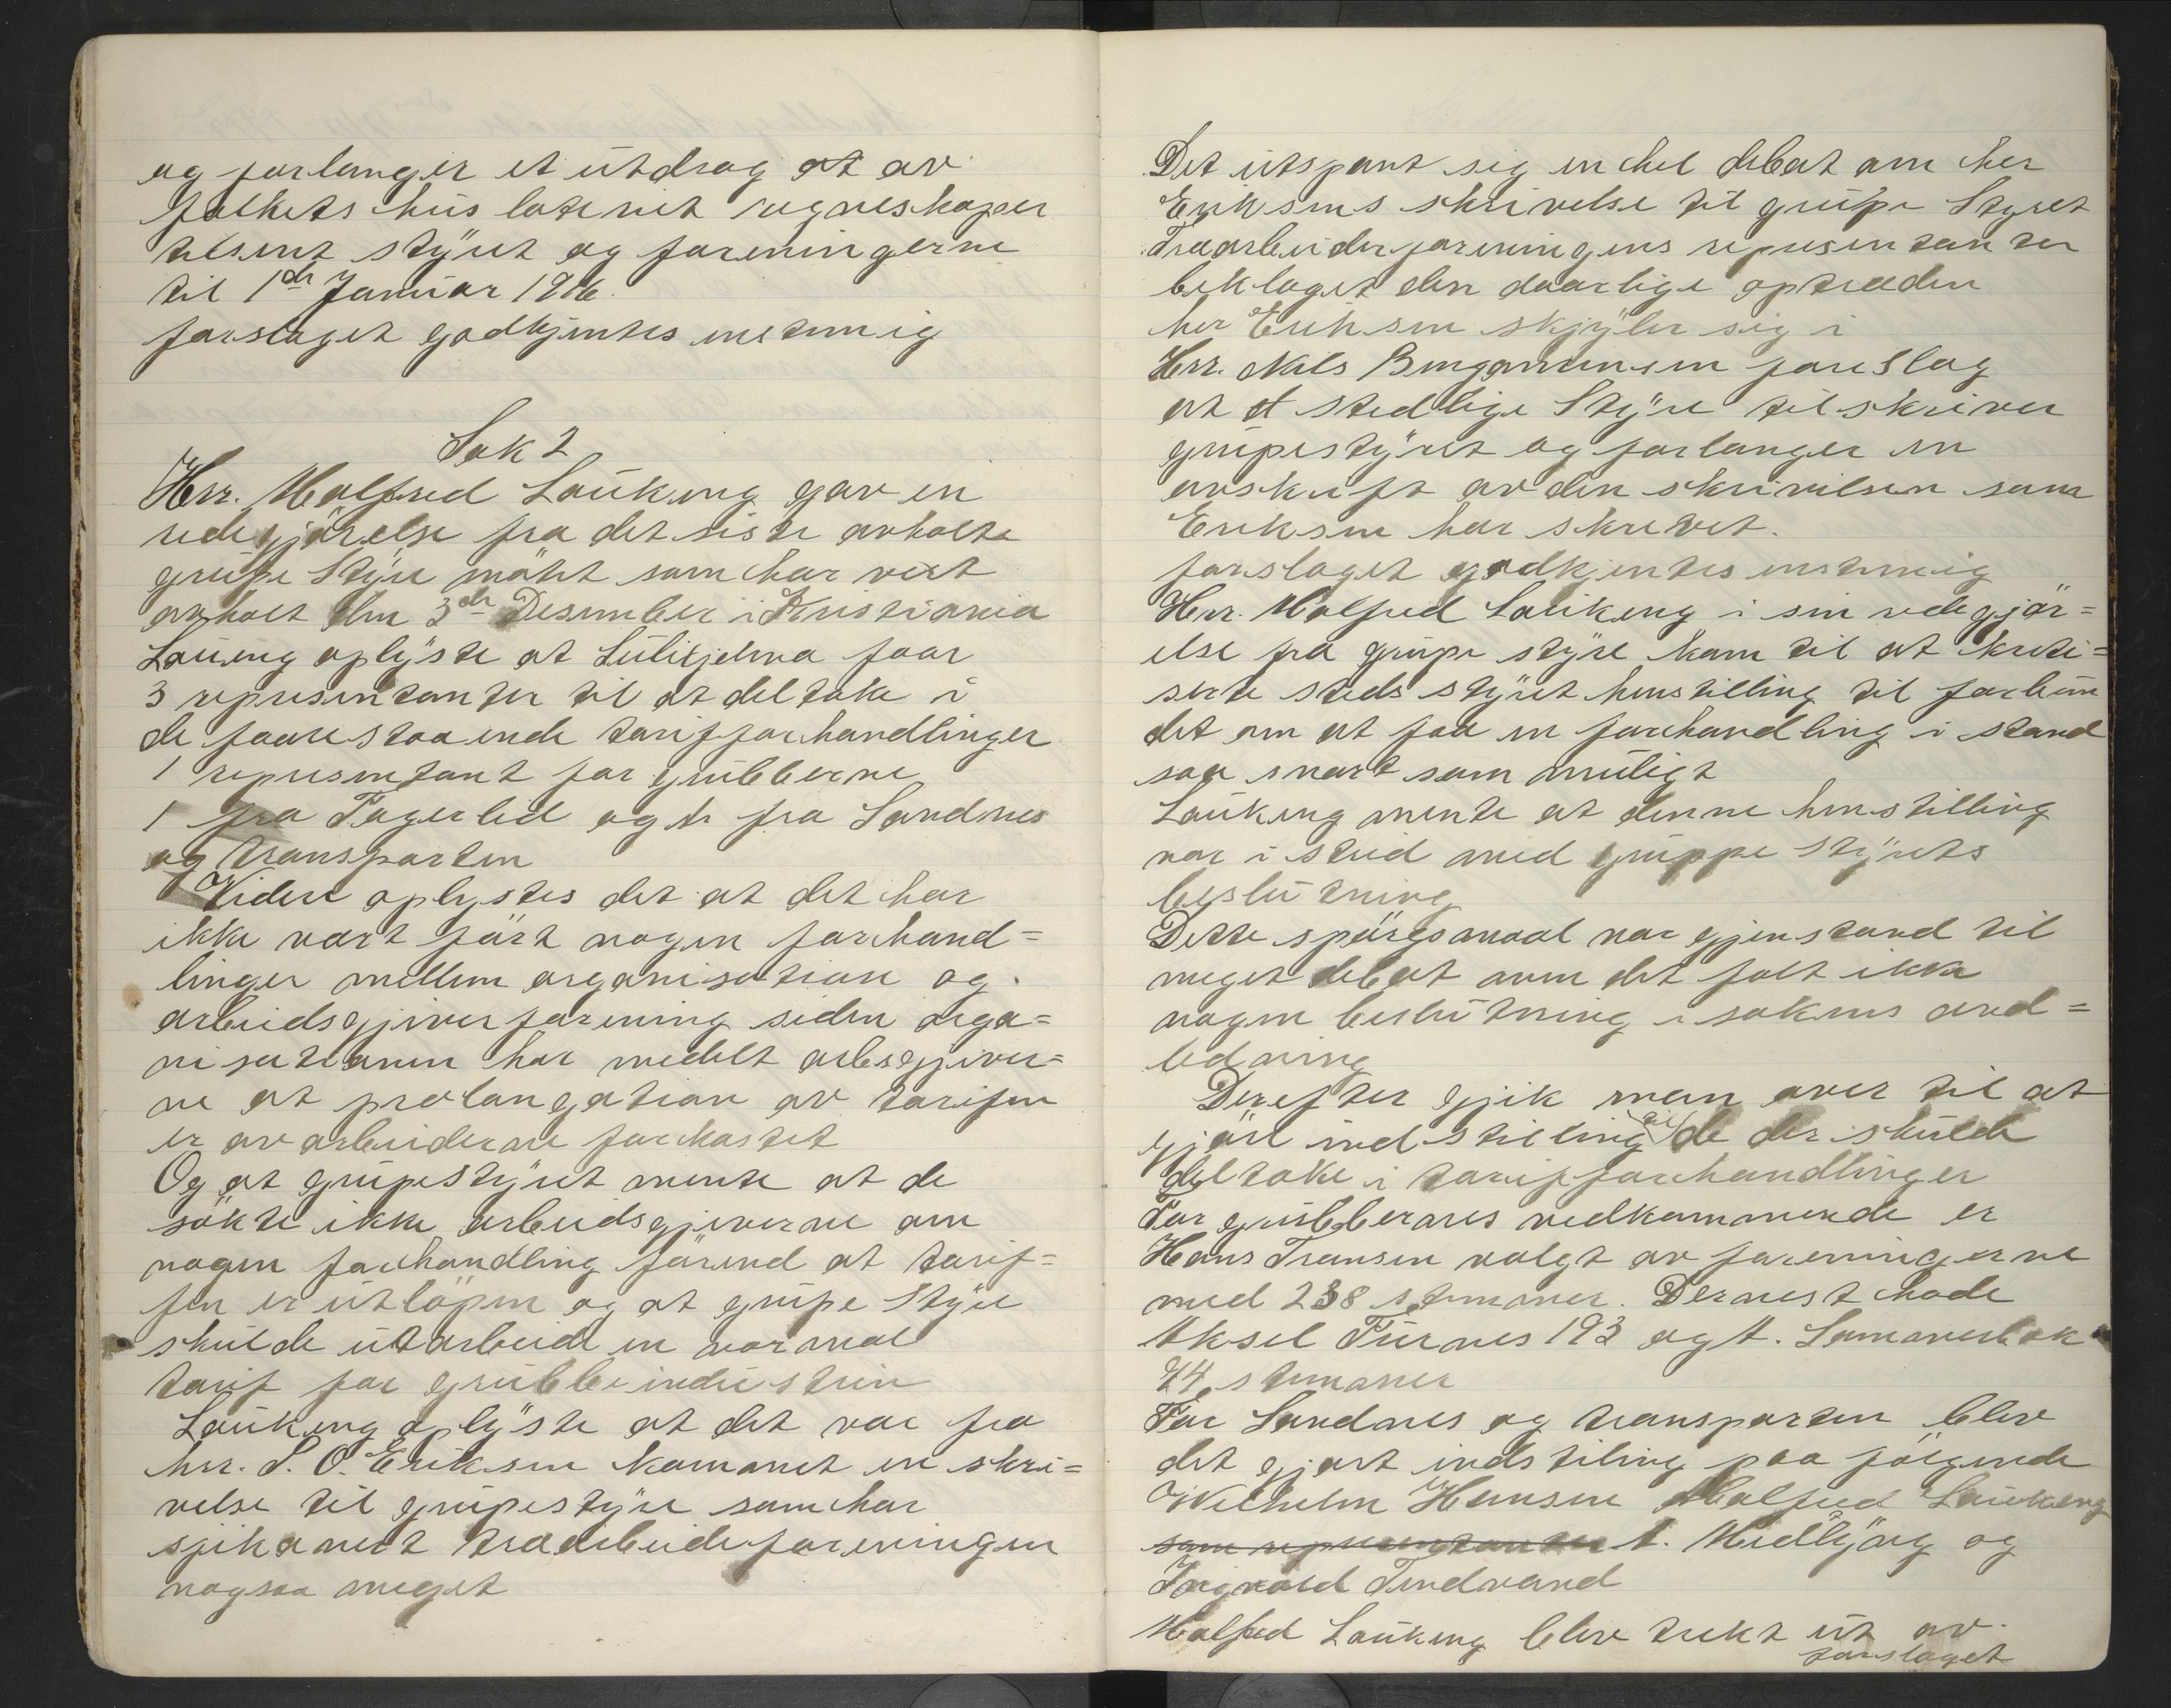 og forlanger et utdrag at av
folkets hus lotteriet regneskaper
tilsent styret og foreningerne
til 1ste Januar 1916.
forslaget godkjentes enstemig
Sak 2
Herr. Halfred Laukeng gav en
redegjörelse fra det siste avholte
grupe Styre mötet som har vert
avholt den 3de Desember i Kristiania
Laueng oplyste at Sulitjelma faar
3 representanter til at deltake i
de forestaaende tarifforhandlinger
1 representant for grubberne
1 fra Fagerlid og fra Sandnes
og transporten
Videre oplystes det at det har
ikke vart fört nogen forhand=
linger mellem organisation og
arbeidsgjiverforening siden orga=
nisationen har medelt arbegjiver=
ne at prolongation av tarifen
er av arbeiderne forkastet
Og at grupestyret mente at de
sökte ikke arbeidsgjiverne om
nogen forhandling förend at tarif=
fen er utlöpen og at grupe Styre
skulde utarbeide en normal
tarif for grubbeindustrien
Laukeng oplyste at det var fra
herr. S. O. Eriksen kommet en skri=
velse til grupestyre som har
sjikanert træarbeideforeningen
nogsaa meget
Det utspant sig en hel debat om her
Eriksens skrivelse til grupe Styret
Træarbeiderforeningens representanter
beklaget den daarlige optræden
her Eriksen skjyler sig i
Herr. Nils Bengaminsen foreslog
at st stedlige Styre tilskriver
grupestyret og forlanger en
avskrift av den skrivelsen som
Eriksen har skrevet.
forslaget godkjentes enstemig
Herr. Halfred Laukeng i sin redegjör=
else fra grupe styre kom til at kriti=
serte steds styret henstilling til forbun
det om at faa en forhandling i stand
saa snart som muligt
Laukeng mente at denne henstilling
var i strid med gruppe Styrets
beslutning
Dette spörgsmaal var gjenstand til
meget debat men det falt ikke
nogen beslutning i sakens and=
ledning
Derefter gjik man over til at
gjöre indstilling til de der skulde
deltake i tarifforhandlinger
For grubbernes vedkommende er
Hans Fransen valgt av foreningerne
med 238 stemmer. Dernest hade
Aksel Furnes 193 og A. Lammersbak
44 stemmer
For Sandnes og transporten blev
det gjort indstiling paa fölgende
Wilhelm Hansen Halfred Laukeng
som representanter A. Midbjörg og
Ingvald Tindvand
Halfred Laukeng blev trekt ut av
forslaget